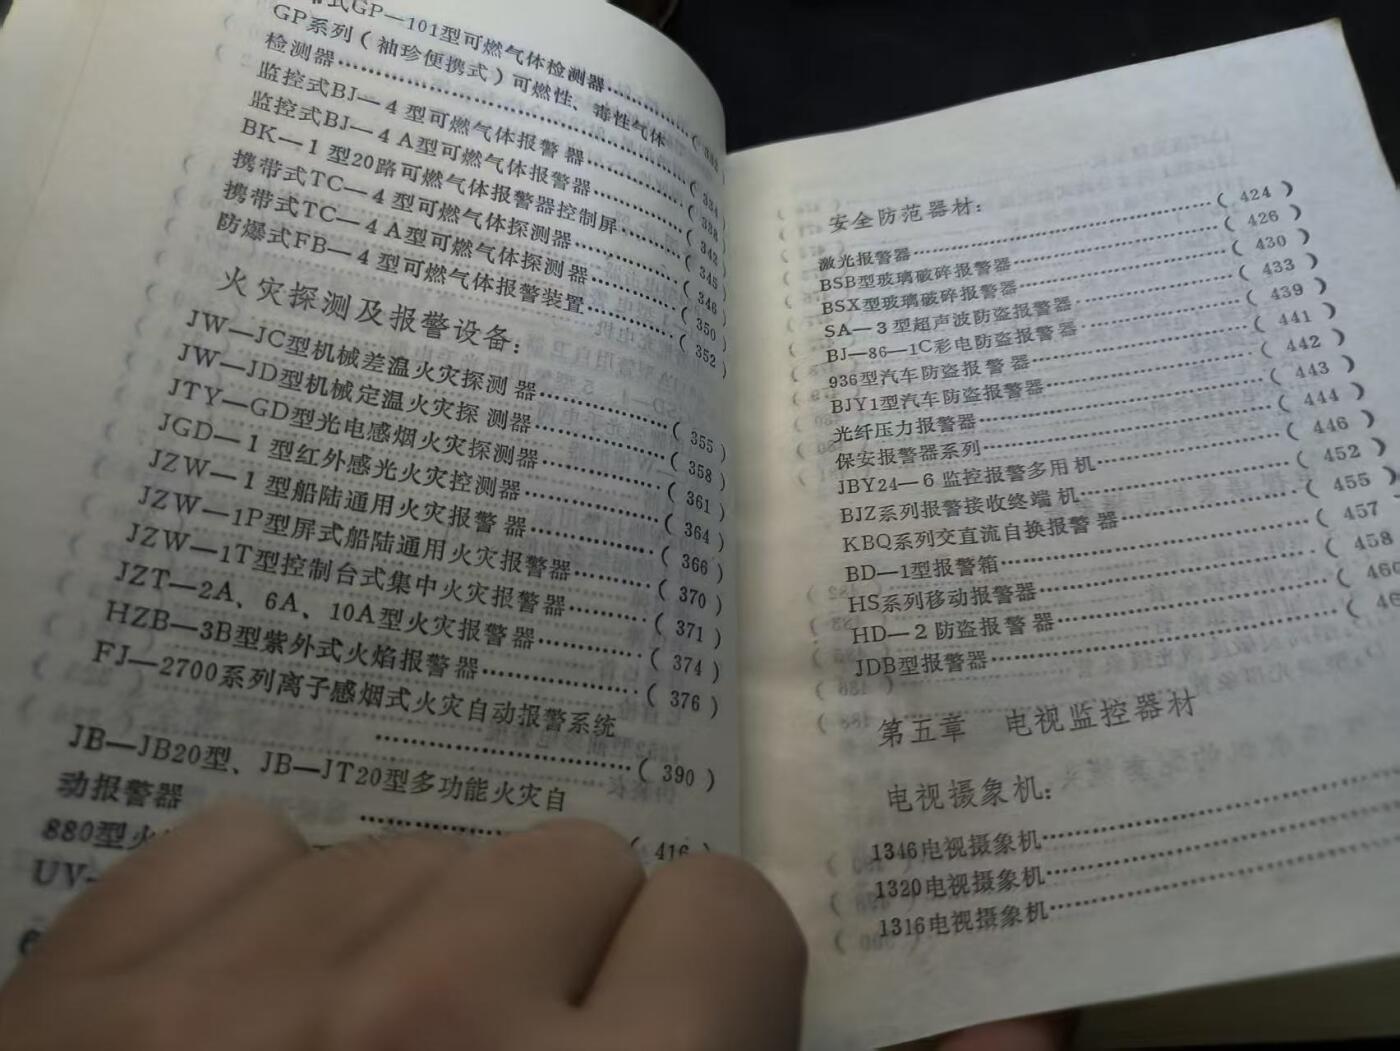 带式GP—101型可燃气体检测器
GP系列（袖珍便携式）可燃性、毒性气体
检测器………（332
监控式BJ—4型可燃气体报警器………（334
监控式BJ—4A型可燃气体报警器………（338
BK—1型20路可燃气体报警器控制屏………（342
携带式TC—4型可燃气体探测器………（345
携带式TC—4A型可燃气体探测器………（346
防爆式FB—4型可燃气体报警装置………（350
（352
火灾探测及报警设备：
JW—JC型机械差温火灾探测器………（355）
JW—JD型机械定温火灾探测器………（358）
JTY—GD型光电感烟火灾探测器………（361）
JGD—1型红外感光火灾控测器………（364）
JZW—1型船陆通用火灾报警器………（366）
JZW—1P型屏式船陆通用火灾报警器………（370）
JZW—1T型控制台式集中火灾报警器………（371）
JZT—2A、6A、10A型火灾报警器………（374）
HZB—3B型紫外式火焰报警器………（376）
FJ—2700系列离子感烟式火灾自动报警系统
………（390）
JB—JB20型、JB—JT20型多功能火灾自
动报警器………（416）
880型火
UV—
安全防范器材：
激光报警器………（424）
BSB型玻璃破碎报警器………（426）
BSX型玻璃破碎报警器………（430）
SA—3型超声波防盗报警器………（433）
BJ—86—1C彩电防盗报警器………（439）
936型汽车防盗报警器………（441）
BJY1型汽车防盗报警器………（442）
光纤压力报警器………（443）
保安报警器系列………（444）
JBY24—6监控报警多用机………（446）
BJZ系列报警接收终端机………（452）
KBQ系列交直流自换报警器………（455）
BD—1型报警箱………（457
HS系列移动报警器………（458
HD—2防盗报警器………（460
JDB型报警器………（46
第五章 电视监控器材
电视摄象机：
1346电视摄象机………
1320电视摄象机………
1316电视摄象机………